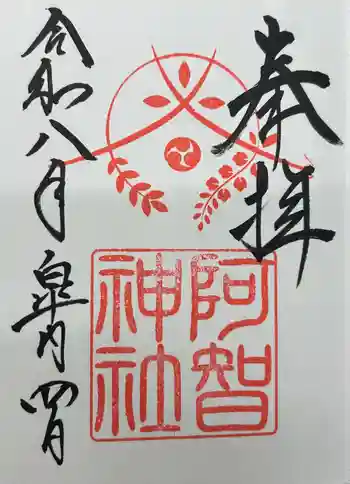 奉拝
阿智
神社
令和八年皐月四日